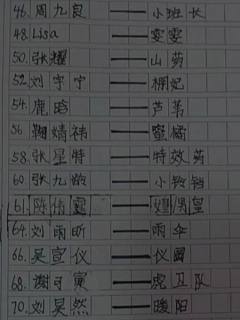 46. 周九良 —— 小班长
48. Lisa —— 雯雯
50. 张耀 —— 山药
52. 刘宇宁 —— 棚妃
54. 鹿晗 —— 芦苇
56. 鞠婧祎 —— 蜜桶
58. 张星特 —— 特效药
60. 张九龄 —— 小铃铛
61. 陈伟霆 —— 男皇
64. 刘雨昕 —— 雨伞
66. 吴宣仪 —— 仪翼
68. 谢可寅 —— 虎卫队
70. 刘昊然 —— 暖阳